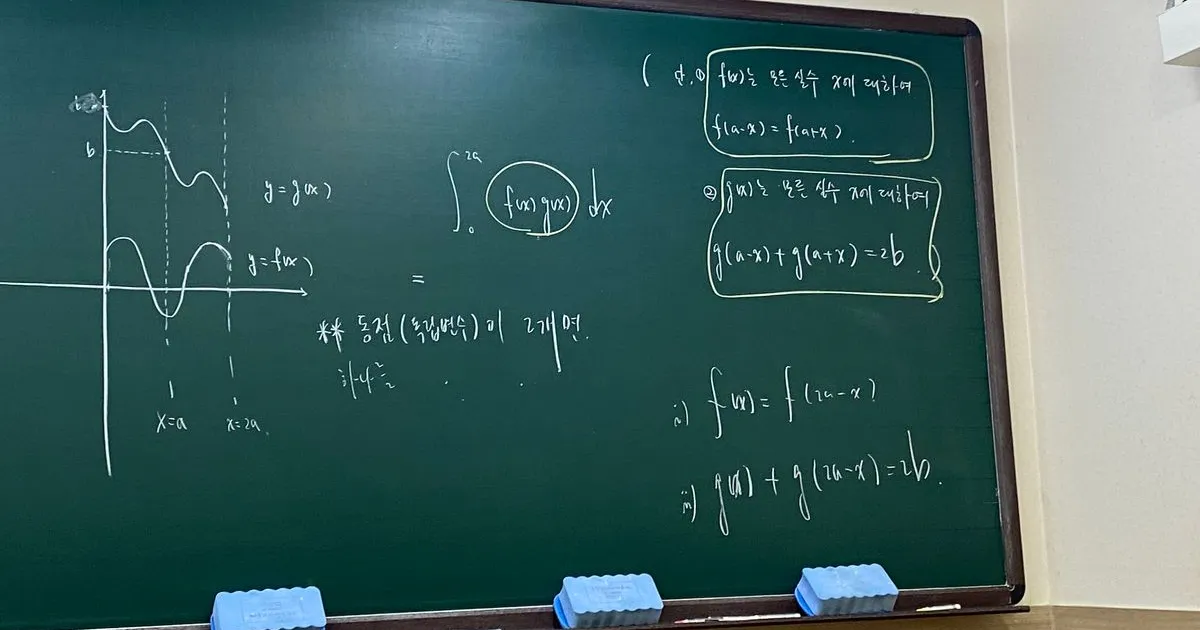 b
y = g(x)
y = f(x)
x=a
x=2a
∫₀²ᵃ f(x) g(x) dx
=
** 동점(독립변수)이 2개면.
하나로
( 단, ① f(x)는 모든 실수 x에 대하여
f(a-x) = f(a+x).
② g(x)는 모든 실수 x에 대하여
g(a-x) + g(a+x) = 2b . )
i) f(x) = f(2a-x)
ii) g(x) + g(2a-x) = 2b.